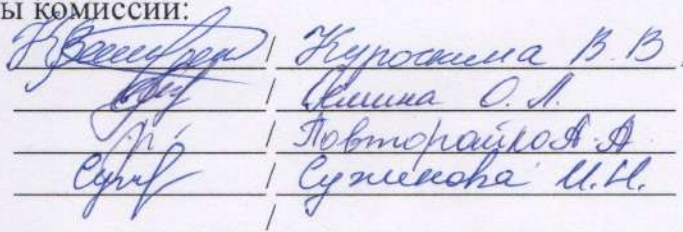 ы комиссии:
/ Курочкина В. В.
/ Семина О. Л.
/ Повторайко А. А.
/ Суженова И. Н.
/